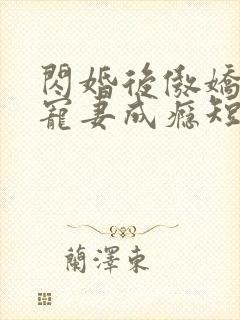 閃婚後傲嬌
寵妻成癮短
蘭澤東